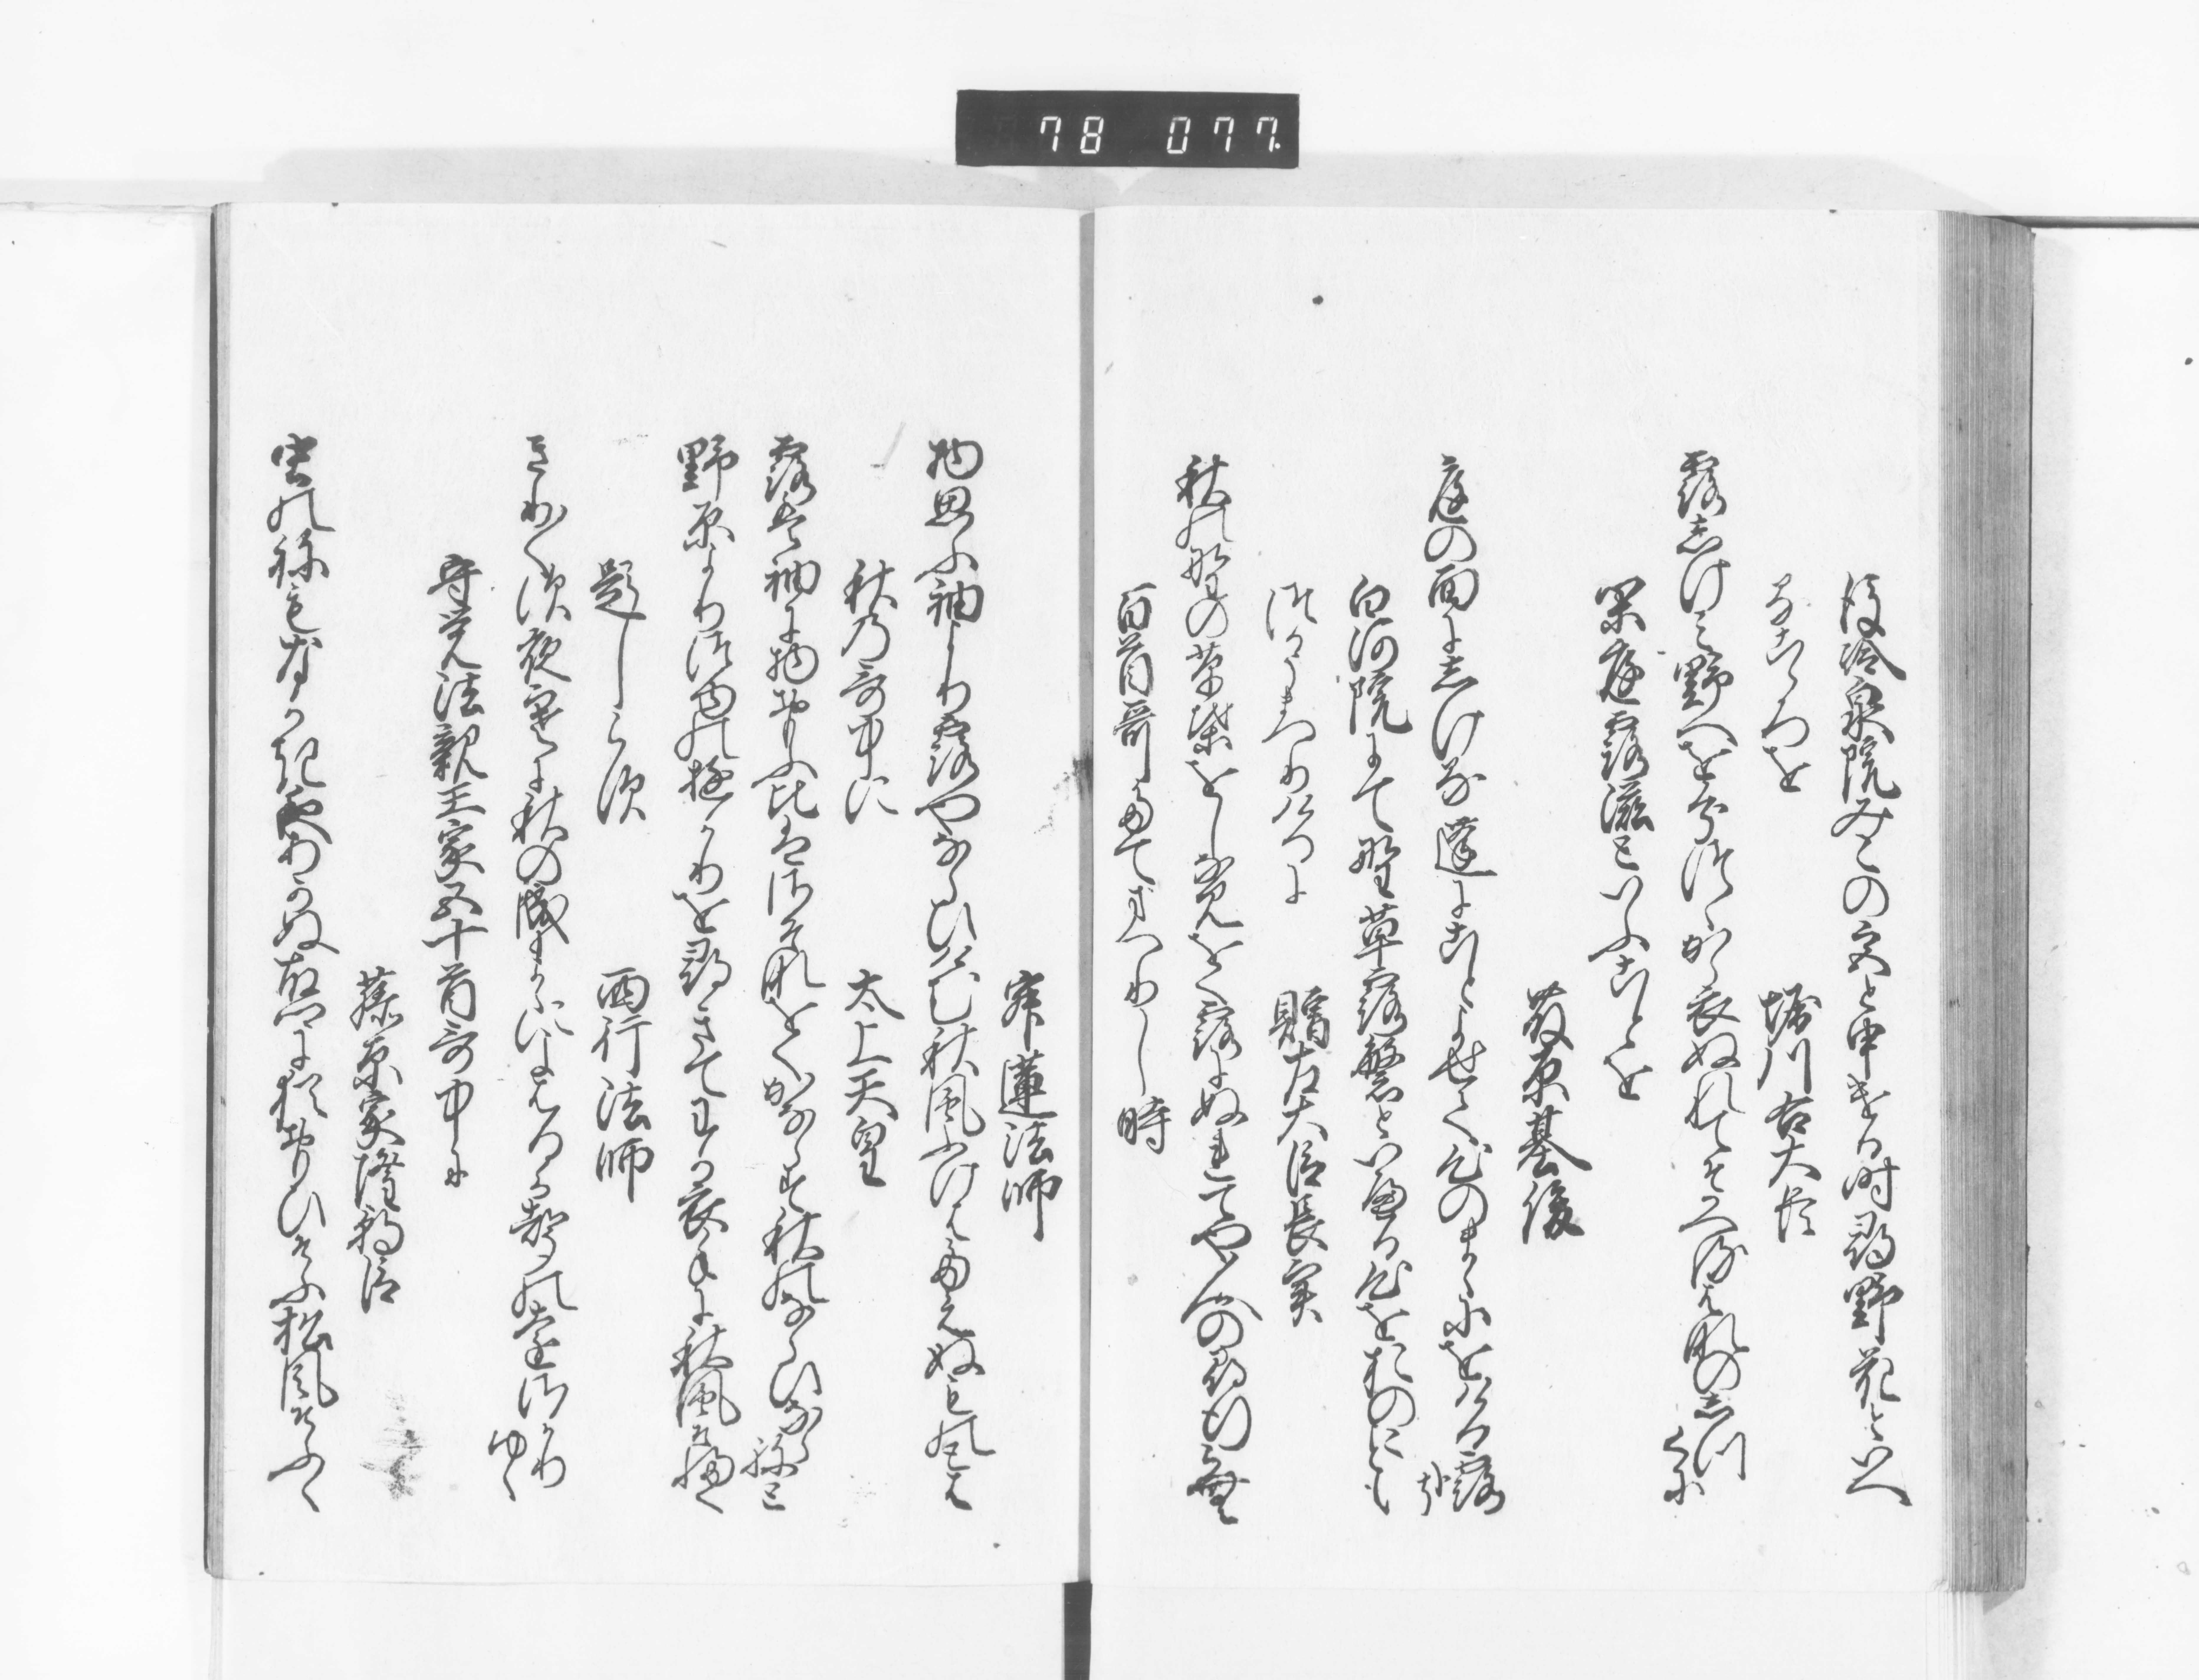 78 077
後冷泉院みこの宮と申ける時尋野花といへ
るこゝろを　堀川右大臣
露しけみ野へを分つゝから衣ぬれてそかへる花のしつ
くに
閑庭露滋といふことを
藤原基俊
庭の面にしける蓬にことよせて心のまゝにをける露
かな
白河院にて野草露繁といへる心をおのことも
つかうまつりけるに　贈左大臣長実
秋の野の草葉をしなみをく露にぬれてや人の尋行らむ
百首哥たてまつりし時
寂蓮法師
物思ふ袖より露やならひけむ秋風ふけはたえぬものとは
秋乃哥中に　太上天皇
露は袖に物おもふ比はさそなをくかならす秋のならひなら
ねと
野原より露のゆかりを尋きてわか衣手に秋風そ吹
題しらす　西行法師
きり〱す夜寒に秋の成まゝによはるか声の遠さかり
ゆく
守覚法親王家五十首哥中に
藤原家隆朝臣
虫のねもなかき夜あかぬ故郷に猶おもひそふ松風そふく